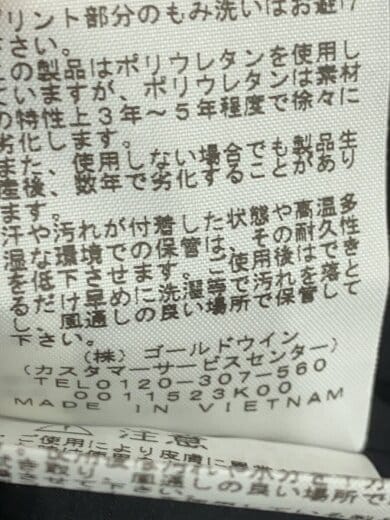 リント部分のもみ洗いはお避け
下さい。
この製品はポリウレタンを使用し
ていますが、ポリウレタンは素材
の特性上3年～5年程度で徐々に
劣化します。
また、使用しない場合でも製品生
産後、数年で劣化することがあり
ます。
汗や汚れが付着した状態や高温多
湿な環境での保管は、その耐久性
を低下させます。ご使用後はでき
るだけ早めに洗濯等で汚れを落と
し、風通しの良い場所で保管して
下さい。
(株) ゴールドウイン
(カスタマーサービスセンター)
TEL0120-307-560
0011523K00
MADE IN VIETNAM
注意
ご使用により皮膚に異常が
き取り、風通しの良い場所で